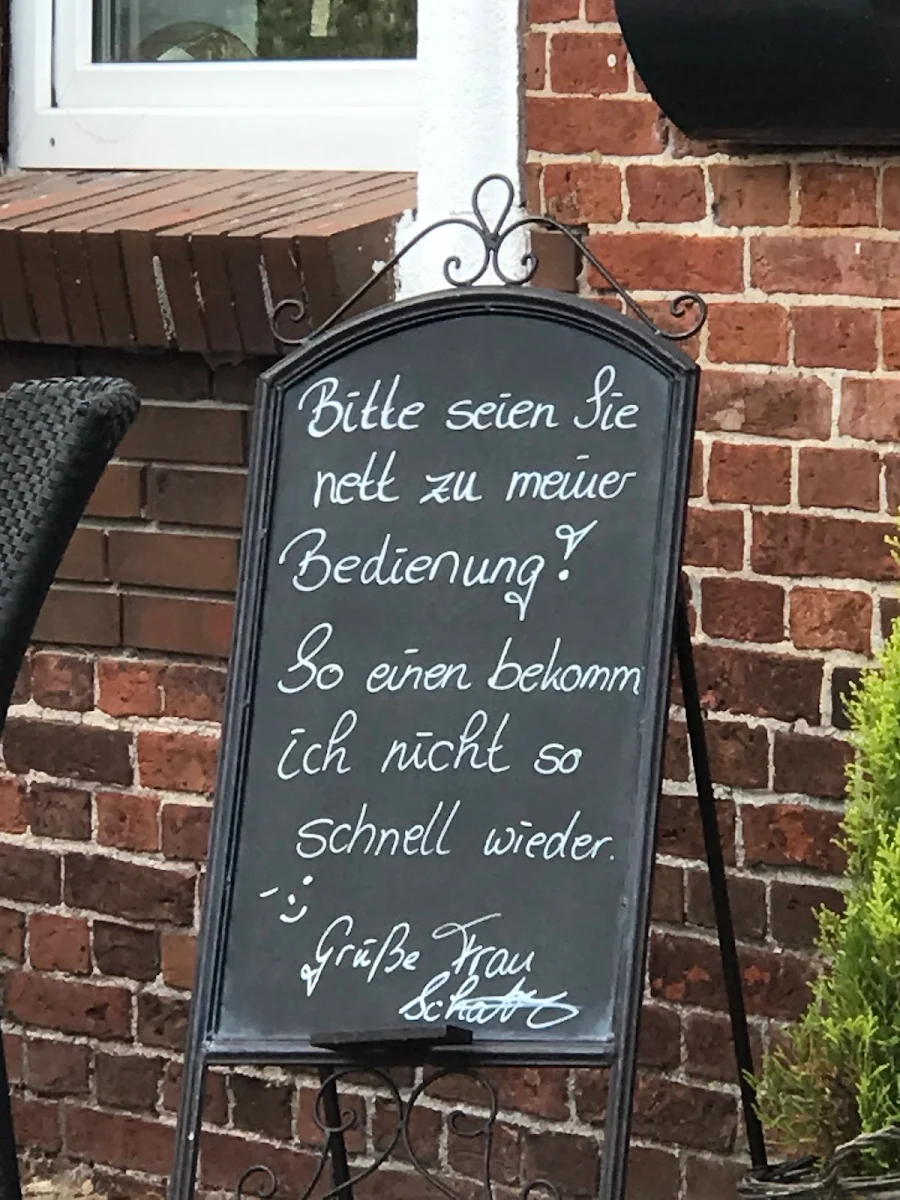 Bitte seien Sie
nett zu meiner
Bedienung!
So einen bekomm
ich nicht so
schnell wieder.
;-)
Grüße Frau
Schatz